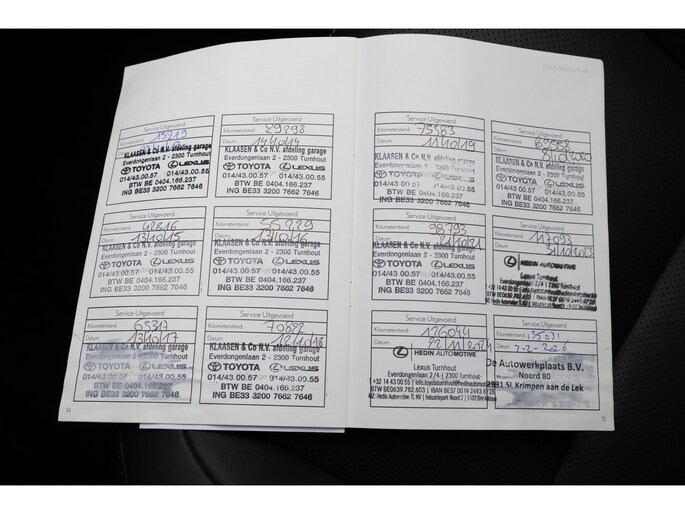 Service Uitgevoerd
15219
KLAASEN & Co N.V. afdeling garage
Everdongenlaan 2 - 2300 Turnhout
TOYOTA LEXUS
014/43.00.57 014/43.00.55
BTW BE 0404.166.237
ING BE33 3200 7662 7646
Service Uitgevoerd
Kilometerstand: 29298
Datum: 14/10/14
KLAASEN & Co N.V. afdeling garage
Everdongenlaan 2 - 2300 Turnhout
TOYOTA LEXUS
014/43.00.57 014/43.00.55
BTW BE 0404.166.237
ING BE33 3200 7662 7646
Service Uitgevoerd
Kilometerstand: 42816
Datum: 13/10/15
KLAASEN & Co N.V. afdeling garage
Everdongenlaan 2 - 2300 Turnhout
TOYOTA LEXUS
014/43.00.57 014/43.00.55
BTW BE 0404.166.237
ING BE33 3200 7662 7646
Service Uitgevoerd
Kilometerstand: 55229
Datum: 13/10/16
KLAASEN & Co N.V. afdeling garage
Everdongenlaan 2 - 2300 Turnhout
TOYOTA LEXUS
014/43.00.57 014/43.00.55
BTW BE 0404.166.237
ING BE33 3200 7662 7646
Service Uitgevoerd
Kilometerstand: 65317
Datum: 13/10/17
KLAASEN & Co N.V. afdeling garage
Everdongenlaan 2 - 2300 Turnhout
TOYOTA LEXUS
014/43.00.57 014/43.00.55
BTW BE 0404.166.237
ING BE33 3200 7662 7646
Service Uitgevoerd
Kilometerstand: 70822
Datum: 12/10/18
KLAASEN & Co N.V. afdeling garage
Everdongenlaan 2 - 2300 Turnhout
TOYOTA LEXUS
014/43.00.57 014/43.00.55
BTW BE 0404.166.237
ING BE33 3200 7662 7646
14
Service Uitgevoerd
Kilometerstand: 75583
Datum: 11/10/19
KLAASEN & Co N.V. afdeling garage
Everdongenlaan 2 - 2300 Turnhout
TOYOTA LEXUS
014/43.00.57 014/43.00.55
BTW BE 0404.166.237
ING BE33 3200 7662 7646
Service Uitgevoerd
Kilometerstand:
Datum:
KLAASEN & Co N.V. afdeling garage
Everdongenlaan 2 - 2300 Turnhout
TOYOTA LEXUS
014/43.00.57 014/43.00.55
BTW BE 0404.166.237
ING BE33 3200 7662 7646
Service Uitgevoerd
Kilometerstand: 98793
Datum:
KLAASEN & Co N.V. afdeling garage
Everdongenlaan 2 - 2300 Turnhout
TOYOTA LEXUS
014/43.00.57 014/43.00.55
BTW BE 0404.166.237
ING BE33 3200 7662 7646
Service Uitgevoerd
Kilometerstand: 117093
Datum:
HEDIN AUTOMOTIVE
Lexus Turnhout
Service Uitgevoerd
Kilometerstand: 126044
Datum: 22/11/2024
HEDIN AUTOMOTIVE
Lexus Turnhout
Everdongenlaan 2/4 | 2300 Turnhout
Service Uitgevoerd
Kilometerstand: 135031
Datum: 2-2-2026
De Autowerkplaats B.V.
Noord 80
2931 SL Krimpen aan de Lek
15